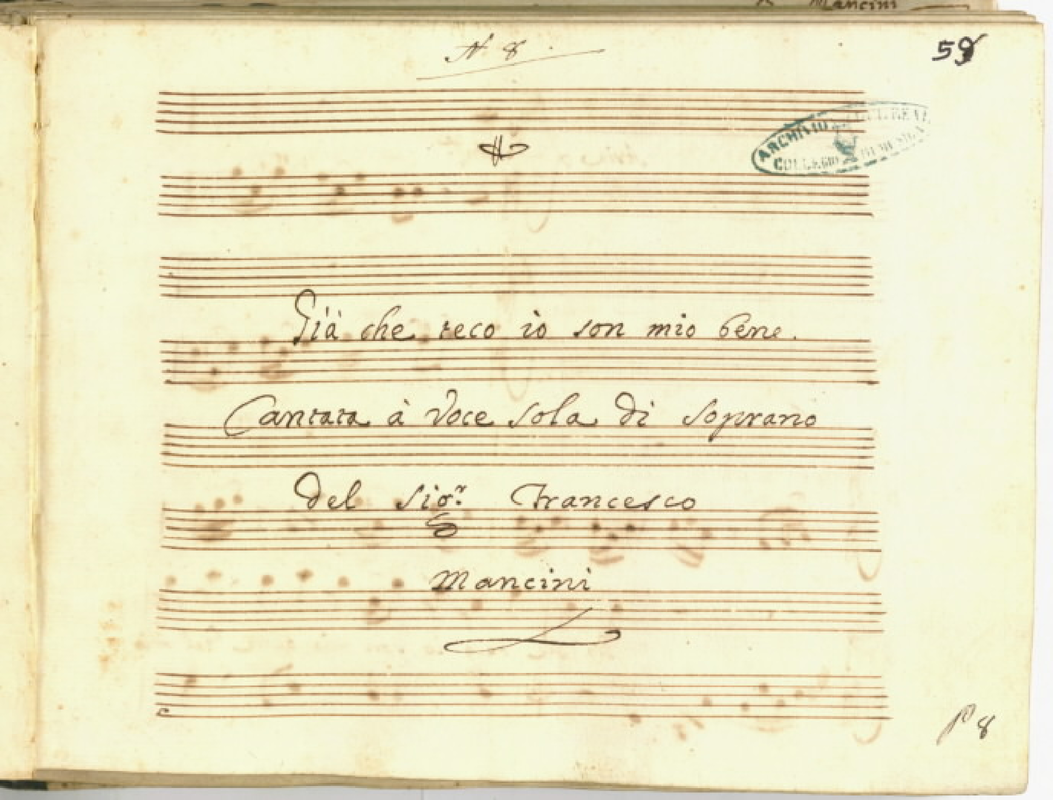 Mancini
N 8
59
ARCHIVIO DEL REAL
COLLEGIO DI MUSICA
Già che teco iò son mio bene.
Cantata à Voce sola di Soprano
Del Sig.r Francesco
Mancini
P 8